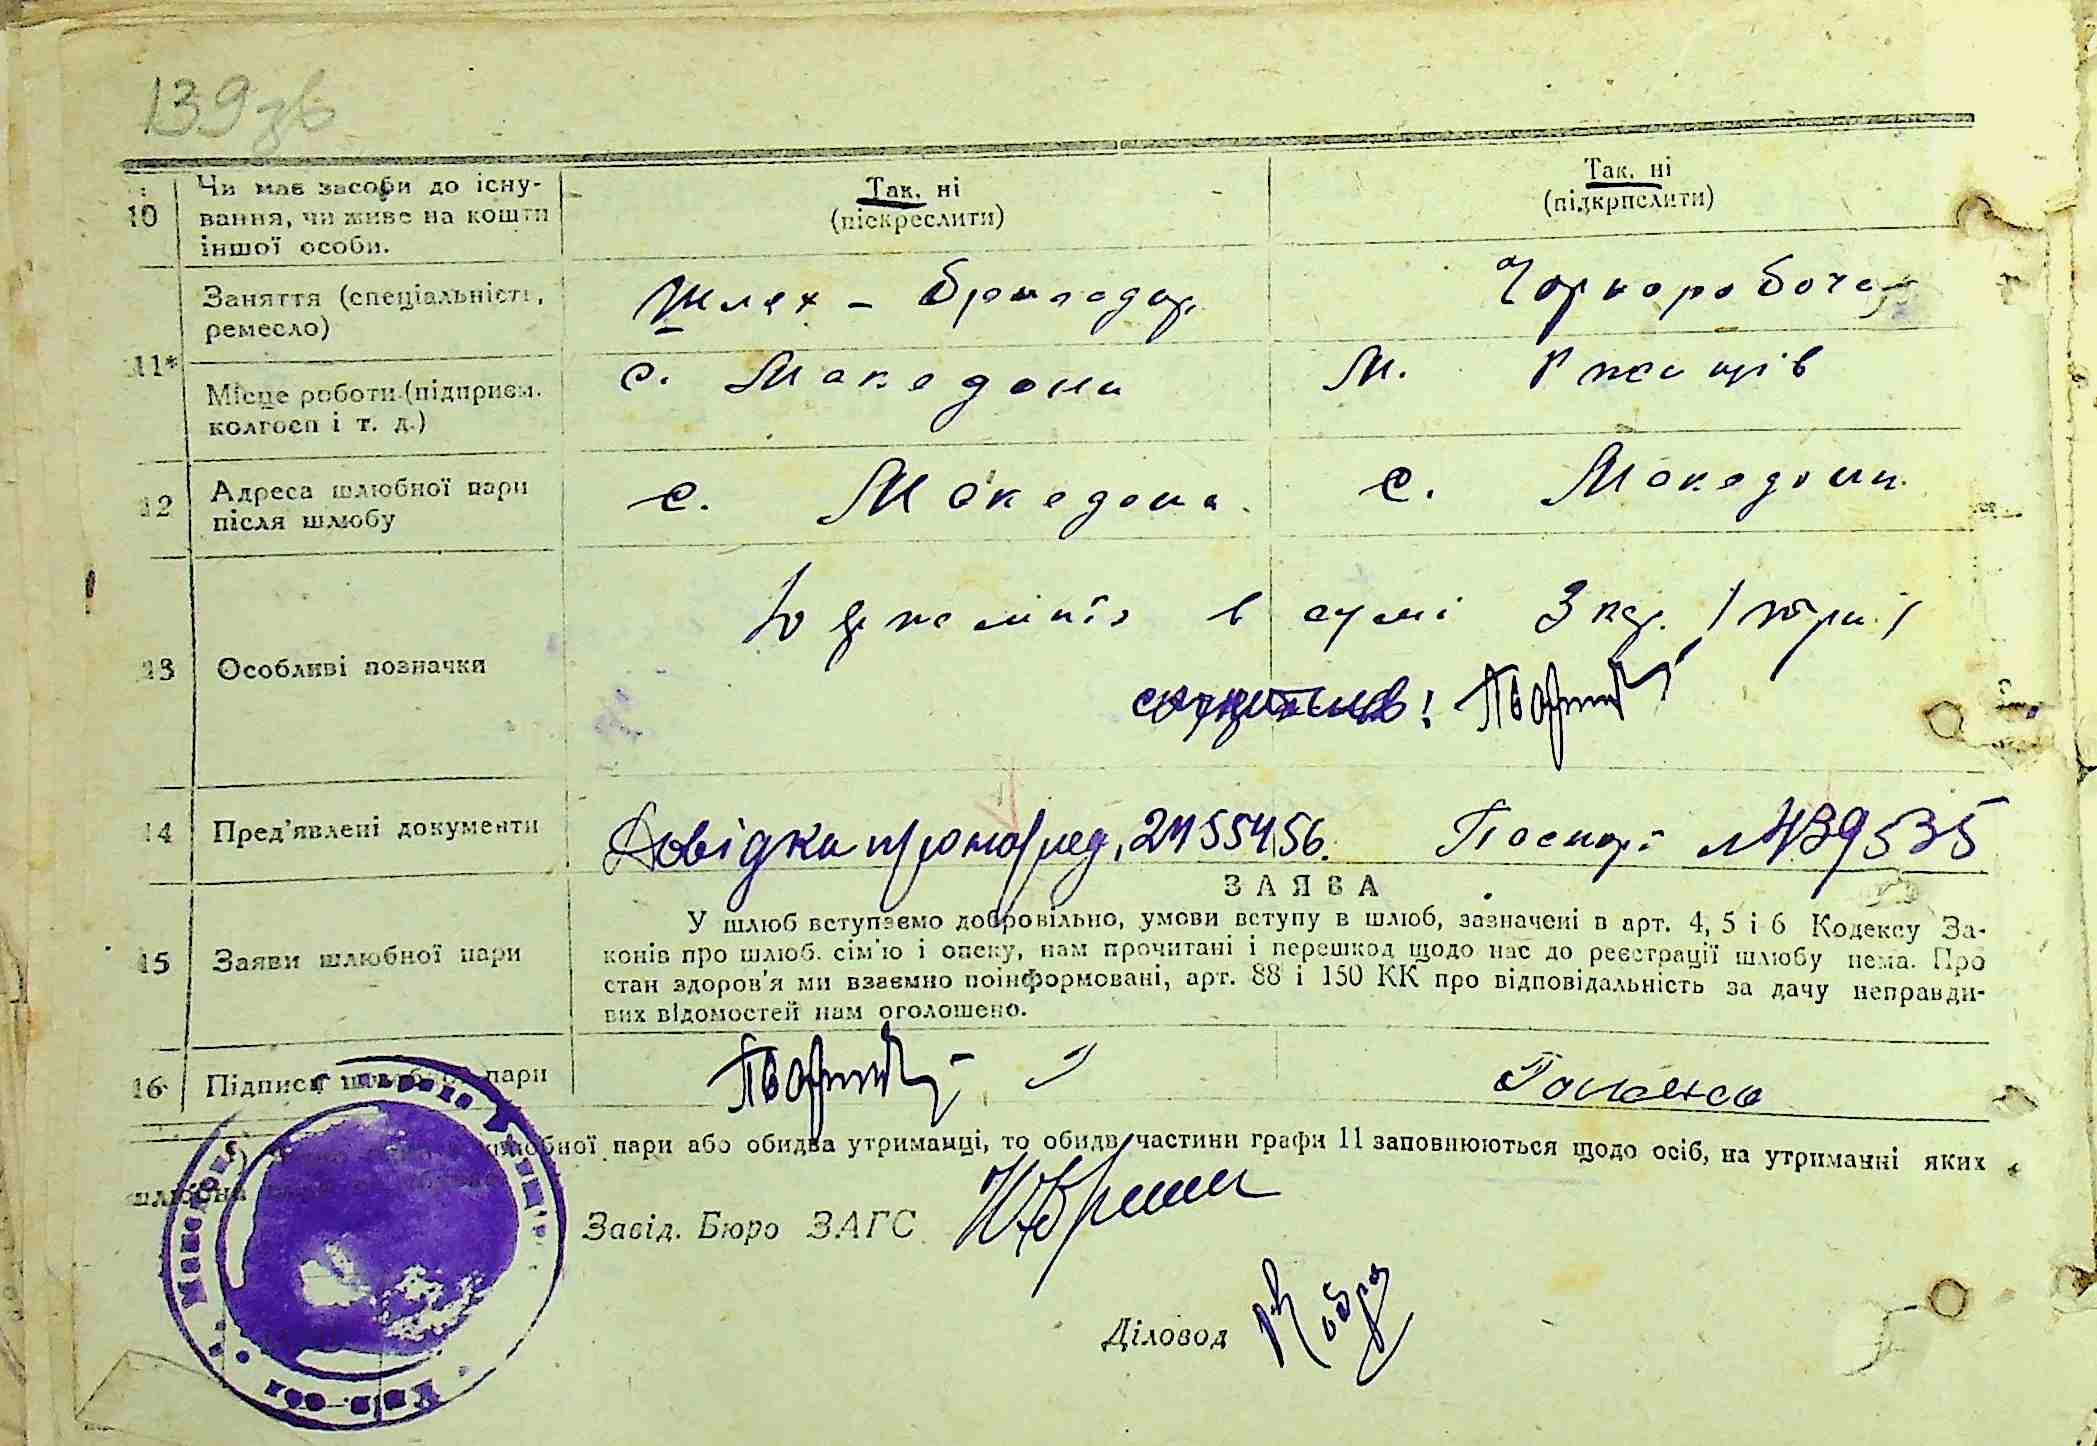 139 зв
10 Чи має засоби до існу-
вання, чи живе на кошти
іншої особи.
Так, ні
(піскреслити)
Так, ні
(підкрпслити)
11* Заняття (спеціальність,
ремесло)
Шлях - бригадир
Чорноробоча
Місце роботи (підприєм.
колгосп і т. д.)
с. Македони
м. Ржищів
12 Адреса шлюбної пари
після шлюбу
с. Македона.
с. Македони.
13 Особливі позначки
в сумі 3 кар. /три/
14 Пред'явлені документи
Довідка 2455456.
Паспорт № 439535
15 Заяви шлюбної пари
ЗАЯВА
У шлюб вступаємо добровільно, умови вступу в шлюб, зазначені в арт. 4, 5 і 6 Кодексу За-
конів про шлюб. сім'ю і опеку, нам прочитані і перешкод щодо нас до реєстрації шлюбу нема. Про
стан здоров'я ми взаємно поінформовані, арт. 88 і 150 КК про відповідальність за дачу неправди-
вих відомостей нам оголошено.
16 Підписи шлюбної пари
шлюбної пари або обидва утриманці, то обидві частини графи 11 заповнюються щодо осіб, на утриманні яких
шлюбна
Завід. Бюро ЗАГС
Діловод
Київ. обл